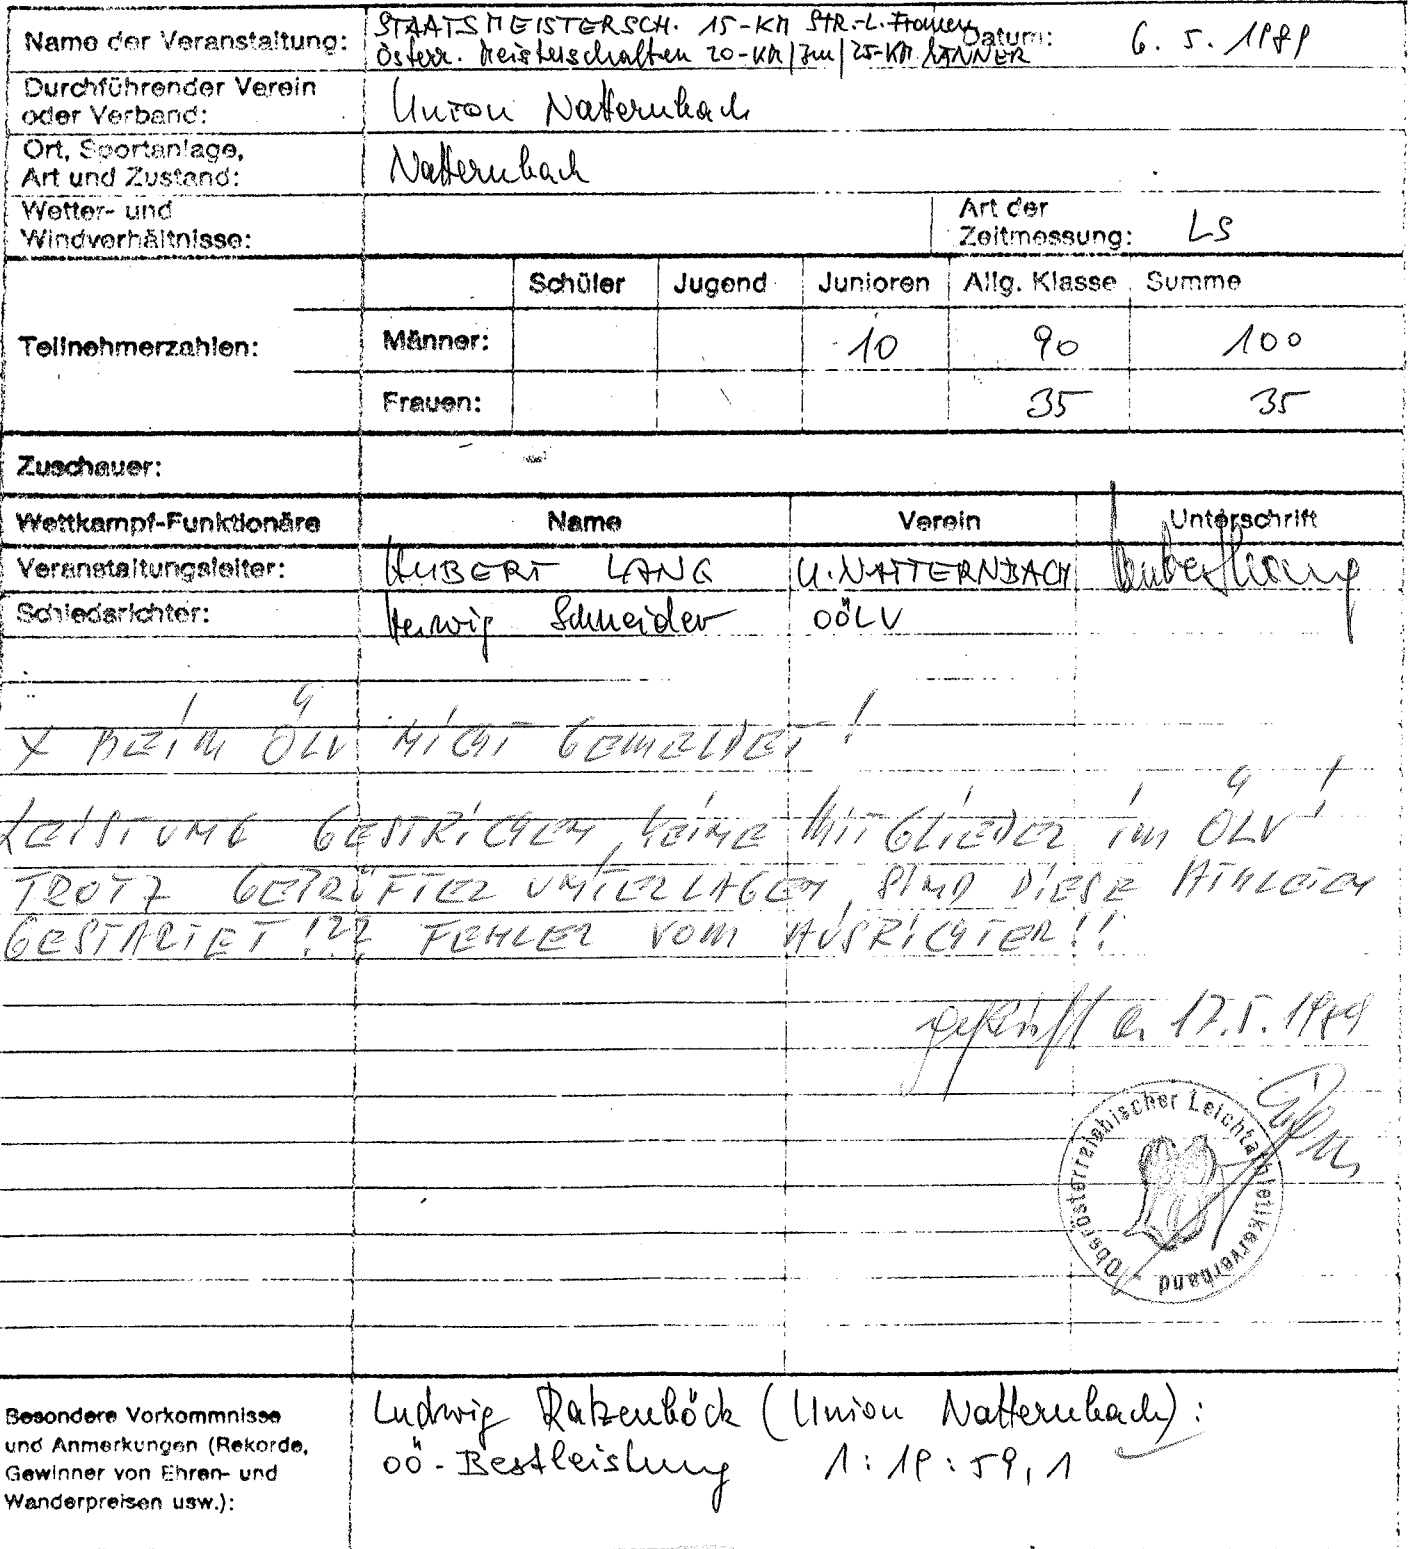 Name der Veranstaltung: STAATSMEISTERSCH. 15-KM STR.-L. Frauen
Österr. Meisterschaften 20-KM/Jun/25-KM MÄNNER Datum: 6. 5. 1989
Durchführender Verein
oder Verband: Union Natternbach
Ort, Sportanlage,
Art und Zustand: Natternbach
Wetter- und
Windverhältnisse:
Art der
Zeitmessung: LS
Schüler Jugend Junioren Allg. Klasse Summe
Teilnehmerzahlen: Männer: 10 90 100
Frauen: 35 35
Zuschauer:
Wettkampf-Funktionäre Name Verein Unterschrift
Veranstaltungsleiter: HUBERT LANG U. NATTERNBACH Hubert Lang
Schiedsrichter: Herwig Schneider OÖLV
X BEIM ÖLV NICHT GEMELDET!
LEISTUNG GESTRICHEN, KEINE MITGLIEDER IM ÖLV!
TROTZ GEPRÜFTER UNTERLAGEN, SIND DIESE ATHLETEN
GESTARTET!?? FEHLER VOM AUSRICHTER!!
geprüft 17.5.1989
Oberösterreichischer Leichtathletikverband
Besondere Vorkommnisse
und Anmerkungen (Rekorde,
Gewinner von Ehren- und
Wanderpreisen usw.):
Ludwig Ratzenböck (Union Natternbach):
OÖ-Bestleistung 1:19:59,1